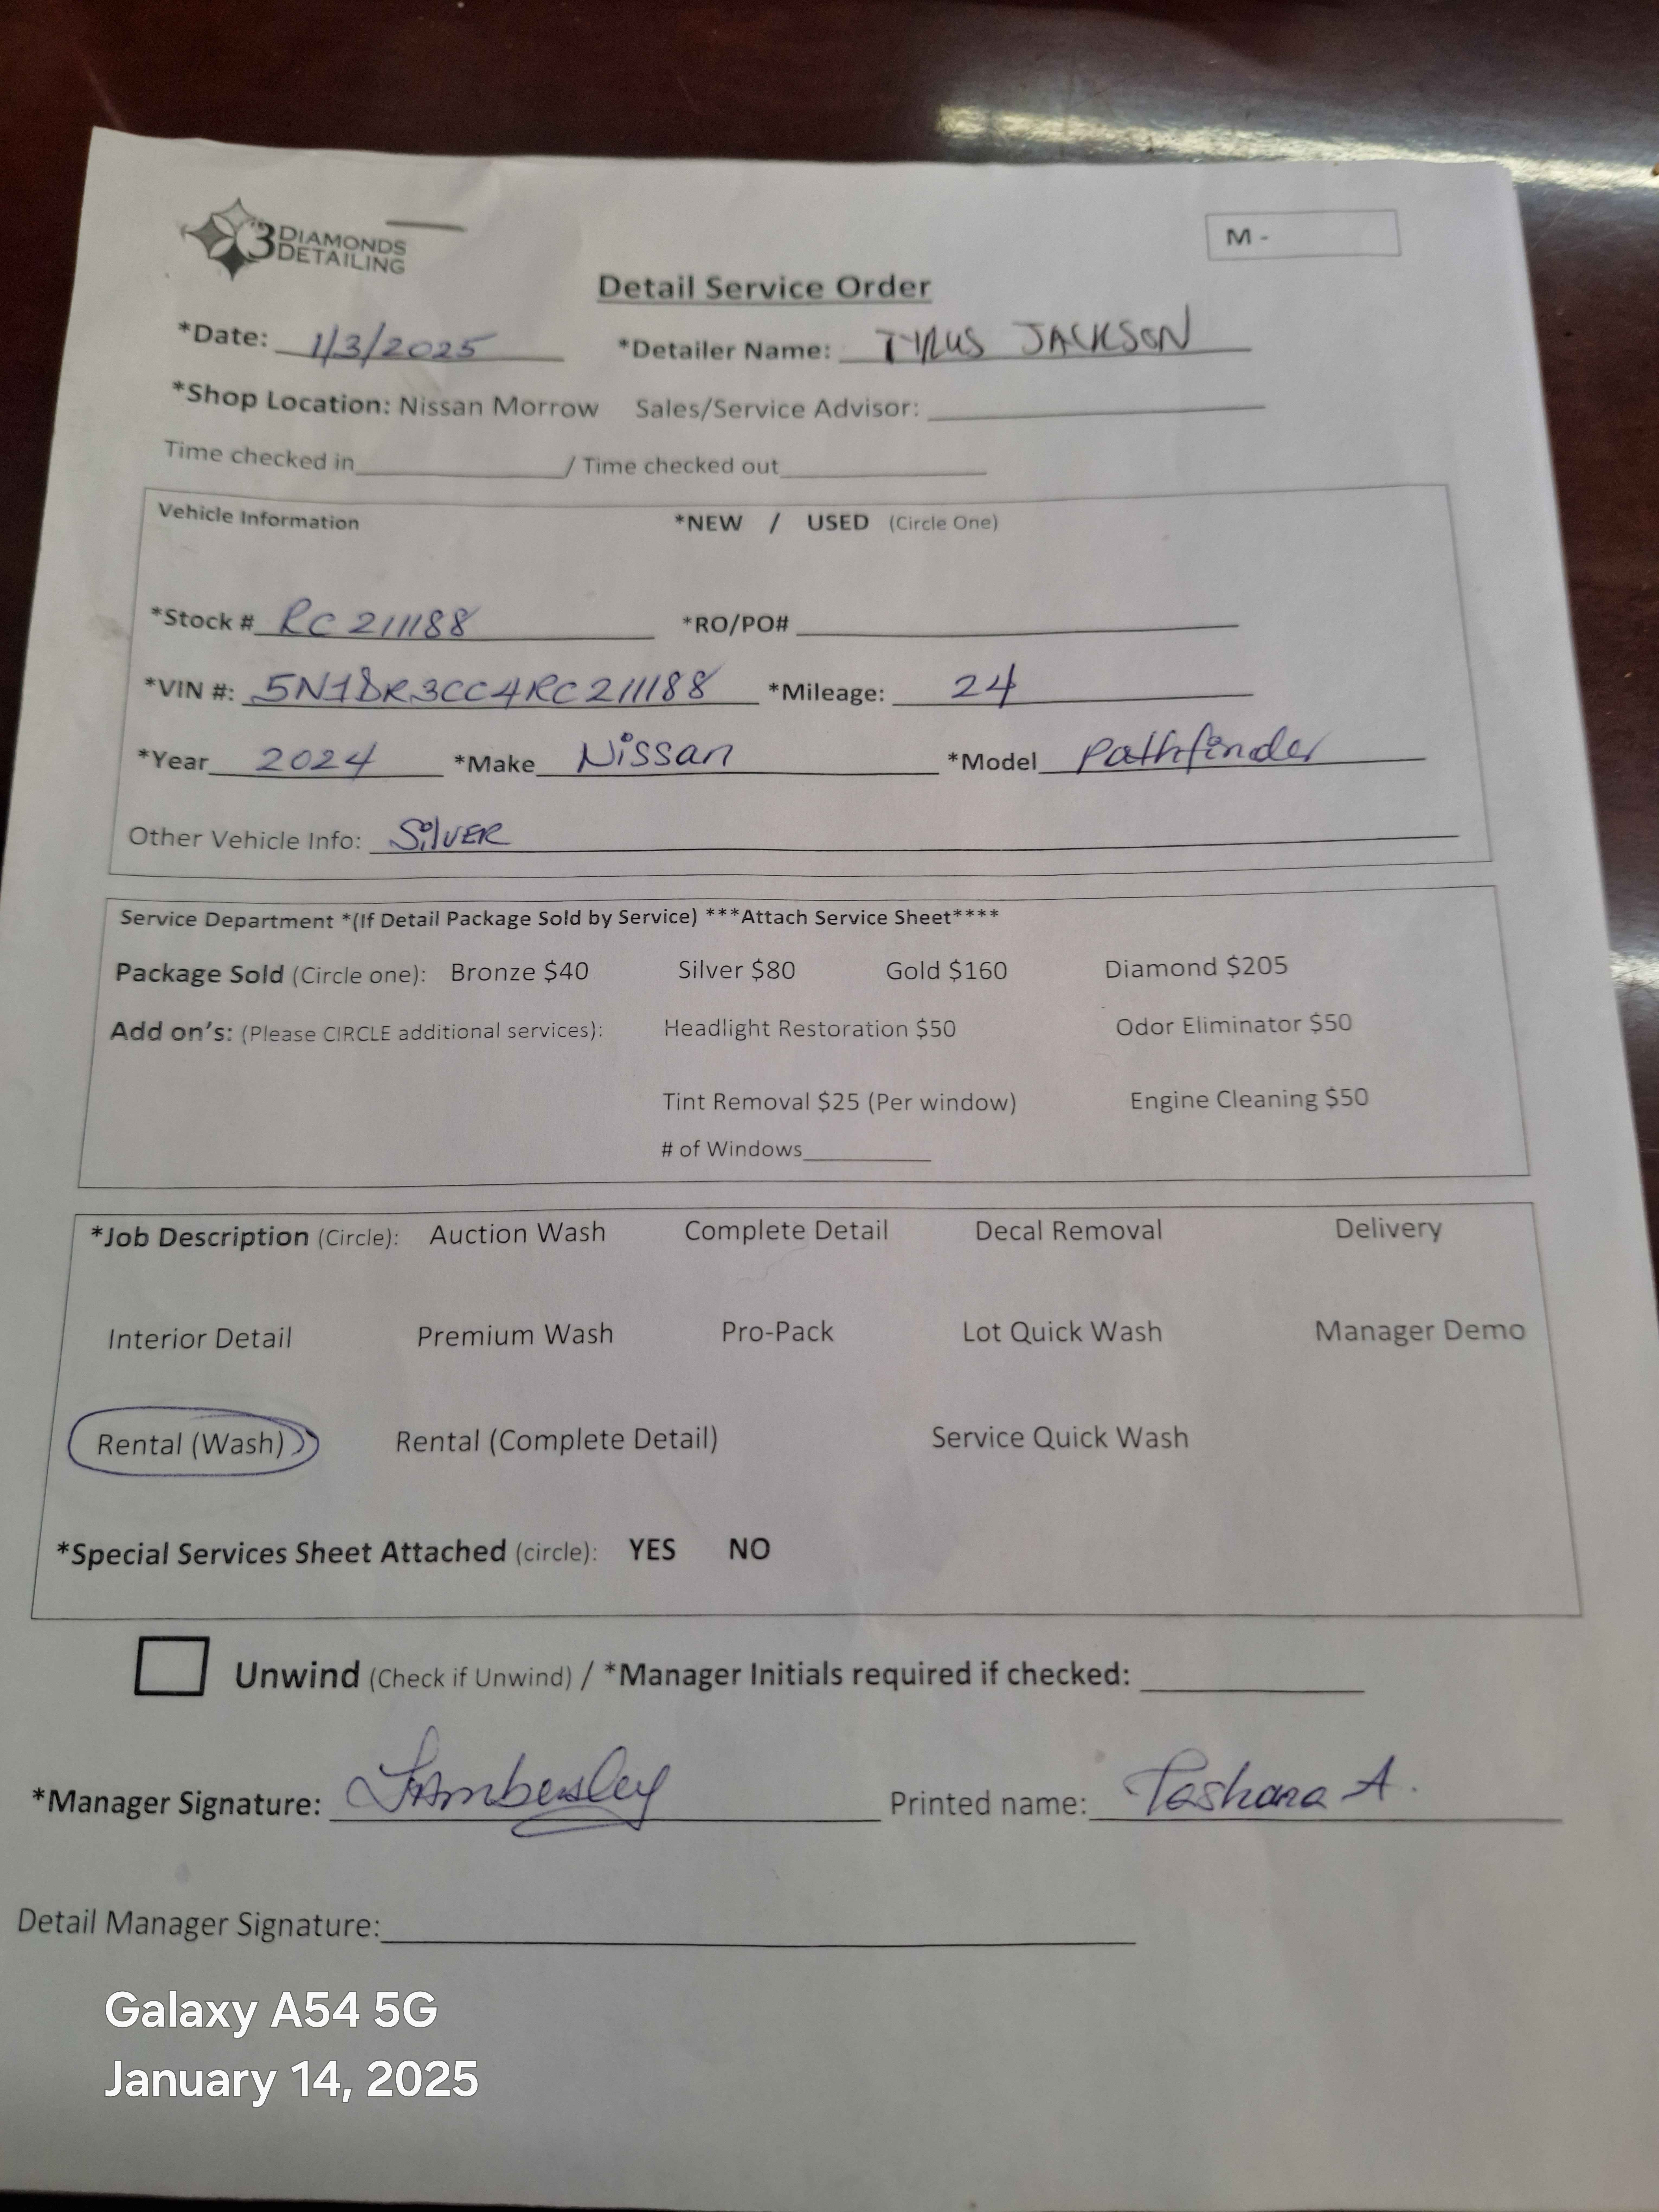 3 DIAMONDS
DETAILING
M -
Detail Service Order
*Date: 1/3/2025 *Detailer Name: TYRUS JACKSON
*Shop Location: Nissan Morrow Sales/Service Advisor:
Time checked in / Time checked out
Vehicle Information *NEW / USED (Circle One)
*Stock # RC211188 *RO/PO#
*VIN #: 5N1DR3CC4RC211188 *Mileage: 24
*Year 2024 *Make Nissan *Model Pathfinder
Other Vehicle Info: SilVER
Service Department *(If Detail Package Sold by Service) ***Attach Service Sheet****
Package Sold (Circle one): Bronze $40 Silver $80 Gold $160 Diamond $205
Add on's: (Please CIRCLE additional services): Headlight Restoration $50 Odor Eliminator $50
Tint Removal $25 (Per window) Engine Cleaning $50
# of Windows
*Job Description (Circle): Auction Wash Complete Detail Decal Removal Delivery
Interior Detail Premium Wash Pro-Pack Lot Quick Wash Manager Demo
Rental (Wash) Rental (Complete Detail) Service Quick Wash
*Special Services Sheet Attached (circle): YES NO
Unwind (Check if Unwind) / *Manager Initials required if checked:
*Manager Signature: Printed name: Tashana A.
Detail Manager Signature:
Galaxy A54 5G
January 14, 2025